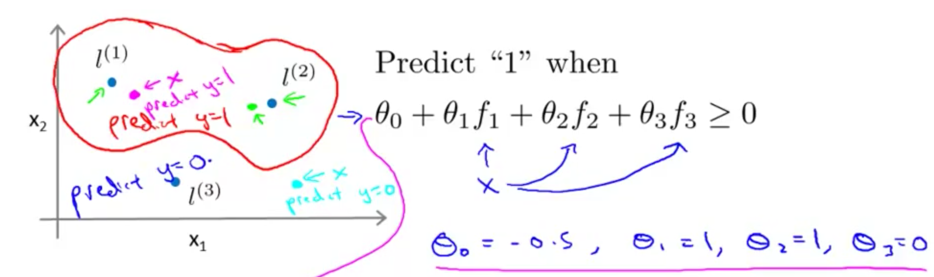 l^(1)
← x
predict y=1
l^(2)
predict y=1
x₂
predict y=0.
l^(3)
← x
predict y=0
x₁
Predict “1” when
θ₀ + θ₁f₁ + θ₂f₂ + θ₃f₃ ≥ 0
x
θ₀ = -0.5, θ₁ = 1, θ₂ = 1, θ₃ = 0